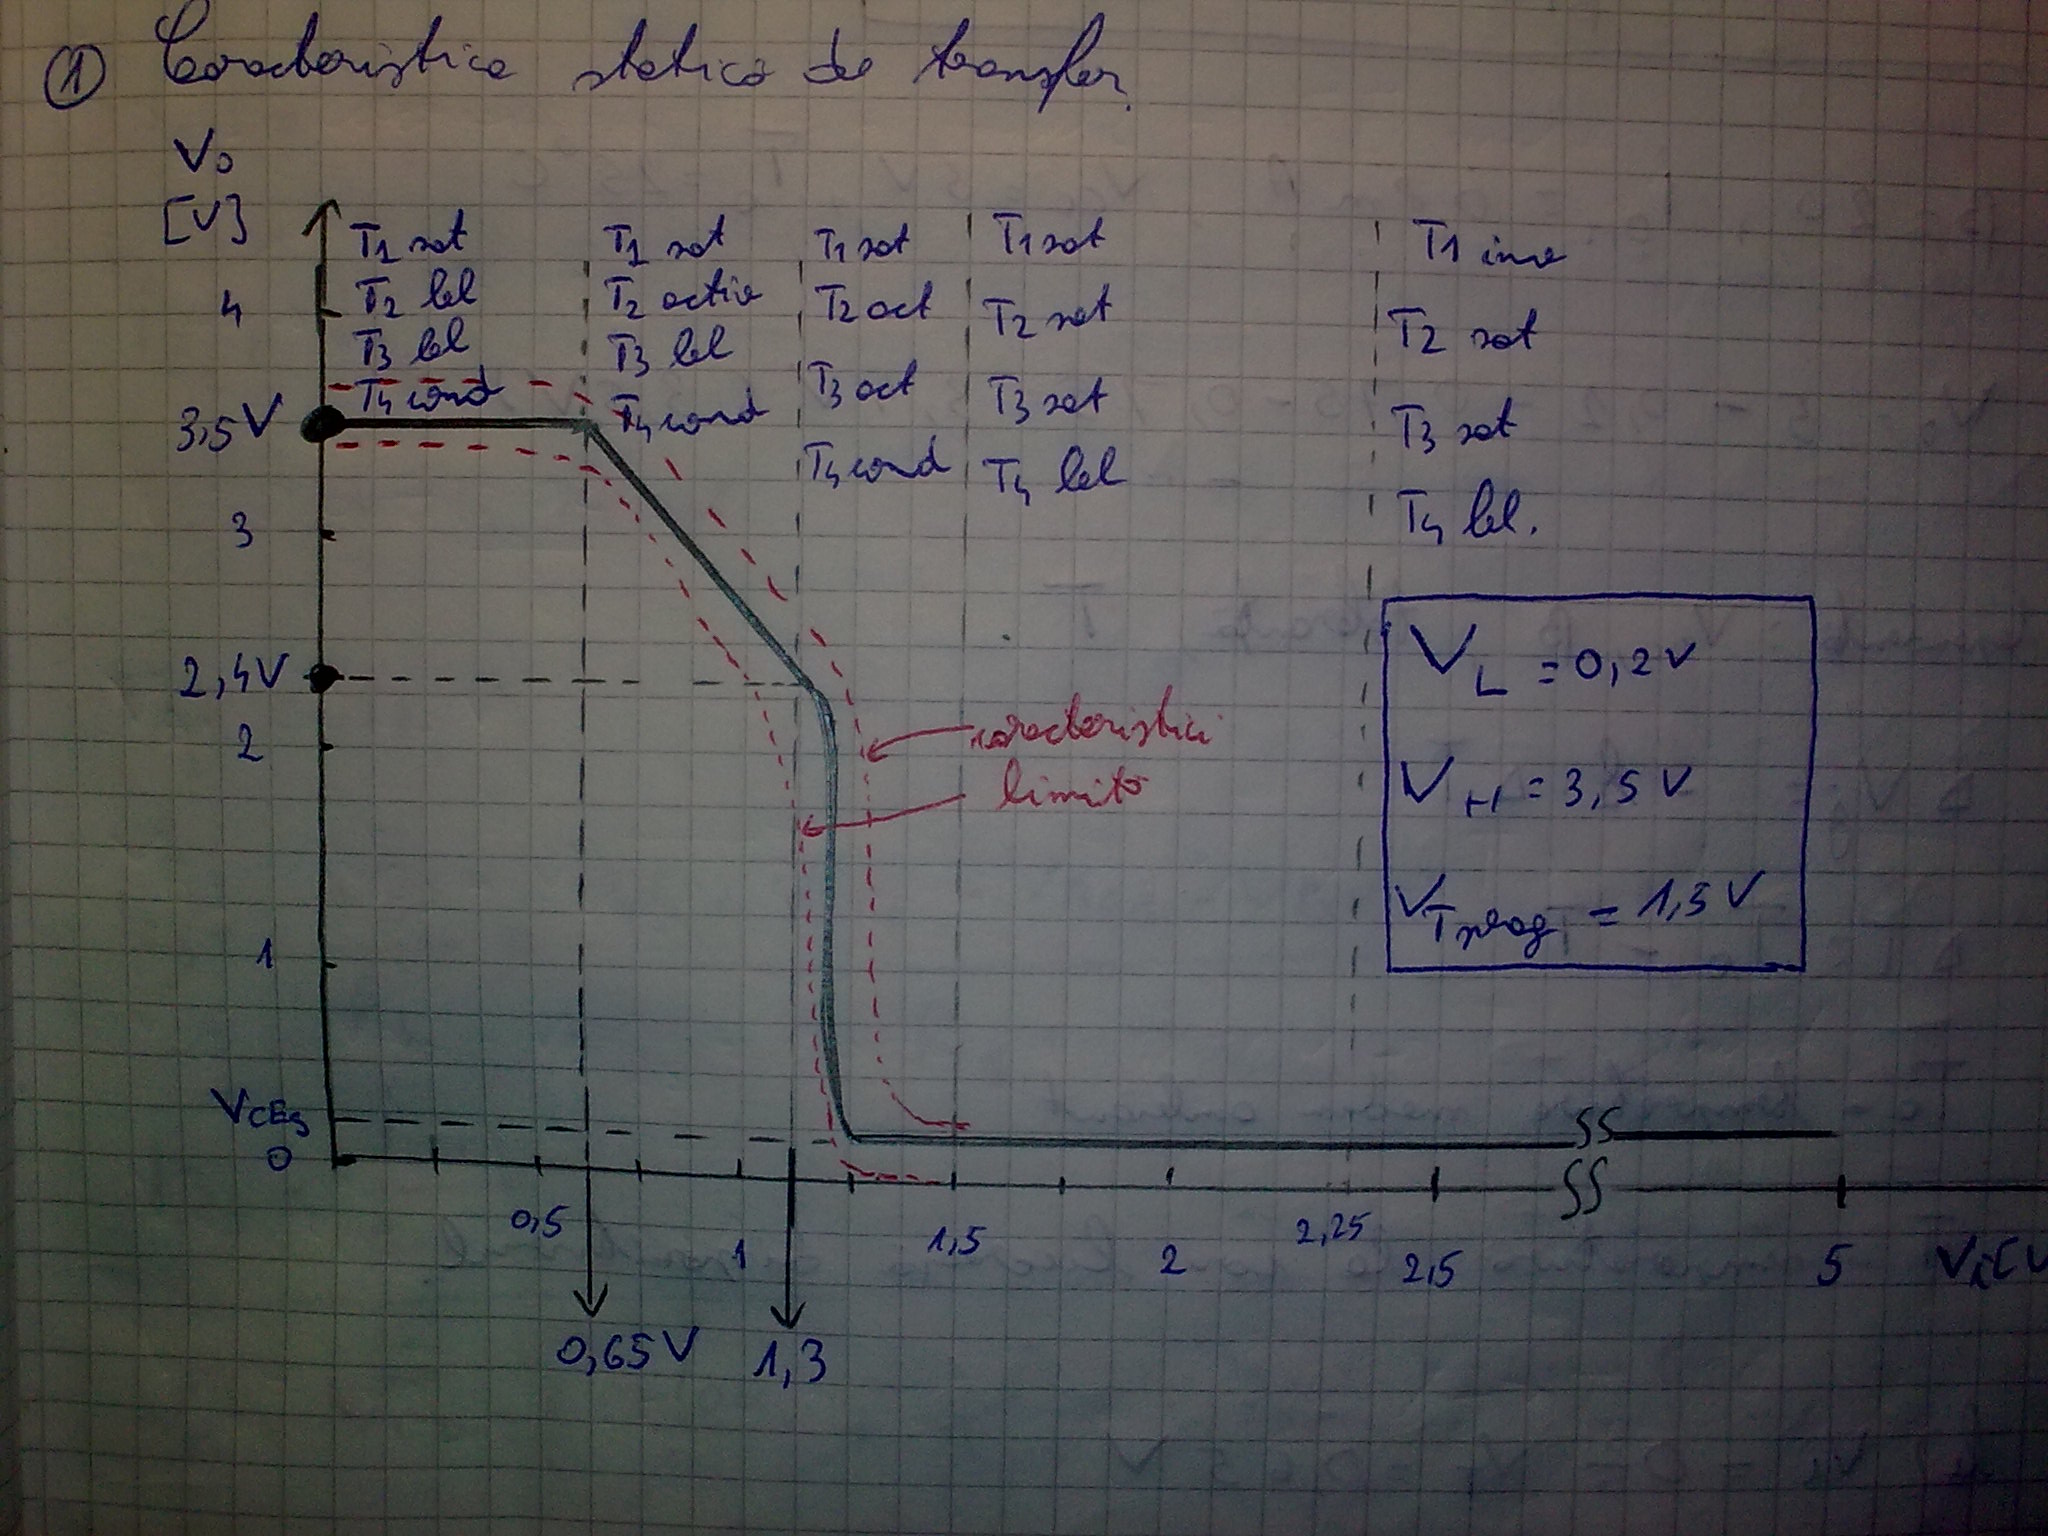 ① Caracteristica statică de transfer.
Vo
[V]
4
3,5V
3
2,4V
2
1
VCES
0
T1 sat
T2 bl
T3 bl
T4 cond
T1 sat
T2 activ
T3 bl
T4 cond
T1 sat
T2 act
T3 act
T4 cond
T1 sat
T2 sat
T3 sat
T4 bl
T1 inv
T2 sat
T3 sat
T4 bl.
VL = 0,2V
VH = 3,5V
VT prag = 1,5V
caracteristici
limită
0,5
1
1,5
2
2,25
2,5
5
Vi [V
0,65V
1,3